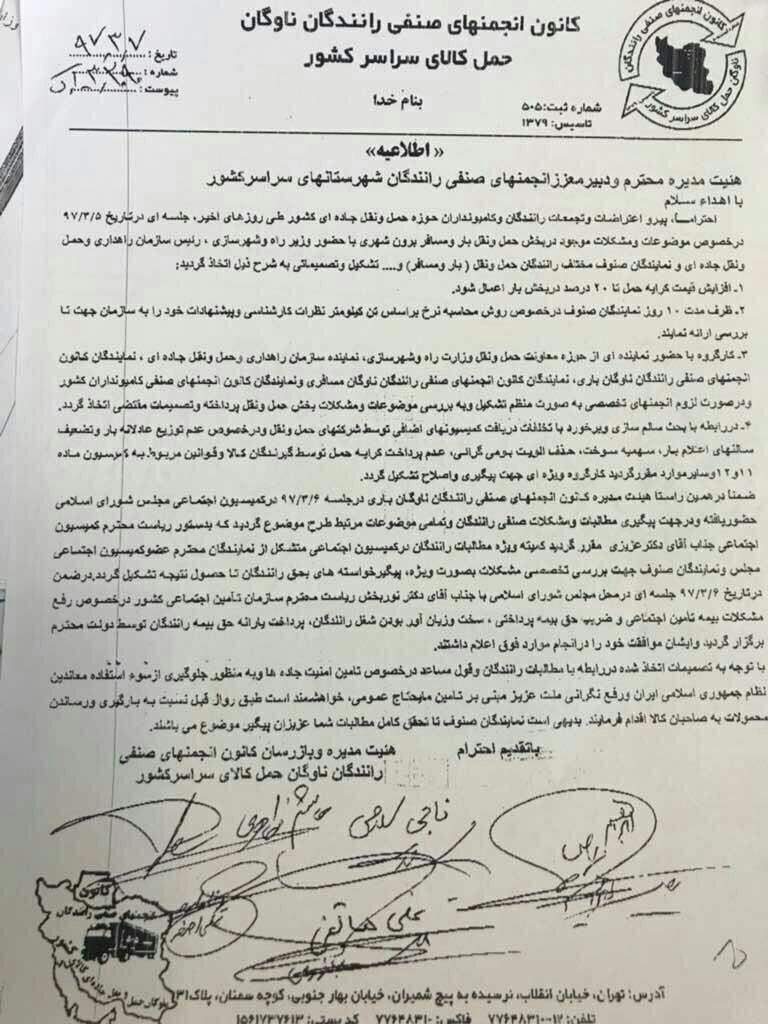 کانون انجمنهای صنفی رانندگان ناوگان
حمل کالای سراسر کشور
بنام خدا
تاریخ : ۹۷۳۷
شماره :
پیوست :
شماره ثبت: ۵۰۵
تاسیس: ۱۳۷۹
کانون انجمنهای صنفی رانندگان
ناوگان حمل کالای سراسر کشور
« اطلاعیه»
هئیت مدیره محترم ودبیرمعززانجمنهای صنفی رانندگان شهرستانهای سراسرکشور
با اهداء سلام
احتراماً، پیرو اعتراضات وتجمعات رانندگان وکامیونداران حوزه حمل ونقل جاده ای کشور طی روزهای اخیر، جلسه ای درتاریخ ۹۷/۳/۵
درخصوص موضوعات ومشکلات موجود دربخش حمل ونقل بار ومسافر برون شهری با حضور وزیر راه وشهرسازی ، رئیس سازمان راهداری وحمل
ونقل جاده ای و نمایندگان صنوف مختلف رانندگان حمل ونقل ( بار ومسافر) و.... تشکیل وتصمیماتی به شرح ذیل اتخاذ گردید:
۱ـ افزایش قیمت کرایه حمل تا ۲۰ درصد دربخش بار اعمال شود.
۲ـ ظرف مدت ۱۰ روز نمایندگان صنوف درخصوص روش محاسبه نرخ براساس تن کیلومتر نظرات کارشناسی وپیشنهادات خود را به سازمان جهت تا
بررسی ارائه نمایند.
۳ـ کارگروه با حضور نماینده ای از حوزه معاونت حمل ونقل وزارت راه وشهرسازی، نماینده سازمان راهداری وحمل ونقل جاده ای ، نمایندگان کانون
انجمنهای صنفی رانندگان ناوگان باری، نمایندگان کانون انجمنهای صنفی رانندگان ناوگان مسافری ونمایندگان کانون انجمنهای صنفی کامیونداران کشور
ودرصورت لزوم انجمنهای تخصصی به صورت منظم تشکیل وبه بررسی موضوعات ومشکلات بخش حمل ونقل پرداخته وتصمیمات مقتضی اتخاذ گردد.
۴ـ دررابطه با بحث سالم سازی وبرخورد با تخلفات دریافت کمیسیونهای اضافی توسط شرکتهای حمل ونقل ودرخصوص عدم توزیع عادلانه بار وتضعیف
سالنهای اعلام بار، سهمیه سوخت، حذف الویت بومی گرائی، عدم پرداخت کرایه حمل توسط گیرندگان کالا وقوانین مربوط به کمیسیون ماده
۱۱و۱۲وسایرموارد مقررگردید کارگروه ویژه ای جهت پیگیری واصلاح تشکیل گردد.
ضمناً درهمین راستا هیئت مدیره کانون انجمنهای صنفی رانندگان ناوگان باری درجلسه ۹۷/۳/۶ درکمیسیون اجتماعی مجلس شورای اسلامی
حضوریافته ودرجهت پیگیری مطالبات ومشکلات صنفی رانندگان وتمامی موضوعات مرتبط طرح موضوع گردید که بدستور ریاست محترم کمیسیون
اجتماعی جناب آقای دکترعزیزی مقرر گردید کمیته ویژه مطالبات رانندگان درکمیسیون اجتماعی متشکل از نمایندگان محترم عضوکمیسیون اجتماعی
مجلس ونمایندگان صنوف جهت بررسی تخصصی مشکلات بصورت ویژه، پیگیرخواسته های بحق رانندگان تا حصول نتیجه تشکیل گردد.درضمن
درتاریخ ۹۷/۳/۶ جلسه ای درمحل مجلس شورای اسلامی با جناب آقای دکتر نوربخش ریاست محترم سازمان تأمین اجتماعی کشور درخصوص رفع
مشکلات بیمه تأمین اجتماعی و ضریب حق بیمه پرداختی ، سخت وزیان آور بودن شغل رانندگان، پرداخت یارانه حق بیمه رانندگان توسط دولت محترم
برگزار گردید وایشان موافقت خود را درانجام موارد فوق اعلام داشتند.
با توجه به تصمیمات اتخاذ شده دررابطه با مطالبات رانندگان وقول مساعد درخصوص تامین امنیت جاده ها وبه منظور جلوگیری ازسوء استفاده معاندین
نظام جمهوری اسلامی ایران ورفع نگرانی ملت عزیز مبنی بر تامین مایحتاج عمومی، خواهشمند است طبق روال قبل نسبت به بارگیری ورساندن
محمولات به صاحبان کالا اقدام فرمایند. بدیهی است نمایندگان صنوف تا تحقق کامل مطالبات شما عزیزان پیگیر موضوع می باشند.
باتقدیم احترام
هئیت مدیره وبازرسان کانون انجمنهای صنفی
رانندگان ناوگان حمل کالای سراسرکشور
علی هاتفی
کانون
انجمنهای صنفی رانندگان
آدرس: تهران، خیابان انقلاب، نرسیده به پیچ شمیران، خیابان بهار جنوبی، کوچه سمنان، پلاک۳۱
تلفن: ۱۲-۷۷۶۴۸۳۱۰ فاکس: ۷۷۶۴۸۳۱۰ کد پستی: ۱۵۶۱۷۳۷۶۱۳